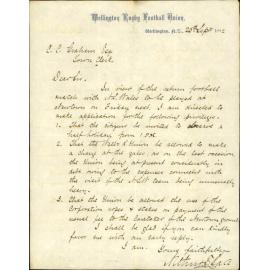 Wellington Rugby Football Union,
Wellington, N.Z., 25th Sept 1882
C. C. Graham Esq
Town Clerk
Dear Sir,
In view of the return football
match with N.S. Wales to be played at
Newtown on Friday next, I am directed to
make application for the following privileges:
1. That the citizens be invited to observe a
half-holiday from 1 P.M.
2. That the W. R. F. Union be allowed to make
a charge at the gates, as on the last occasion
the Union being at present considerably in
debt owing to the expenses connected with
the visit of the NSW team being unusually
heavy.
3. That the Union be allowed the use of the
Corporation ropes & stakes on payment of the
usual fee to the Caretaker of the Newtown ground
I shall be glad if you can kindly
favor me with an early reply.
I am
Yours faithfully